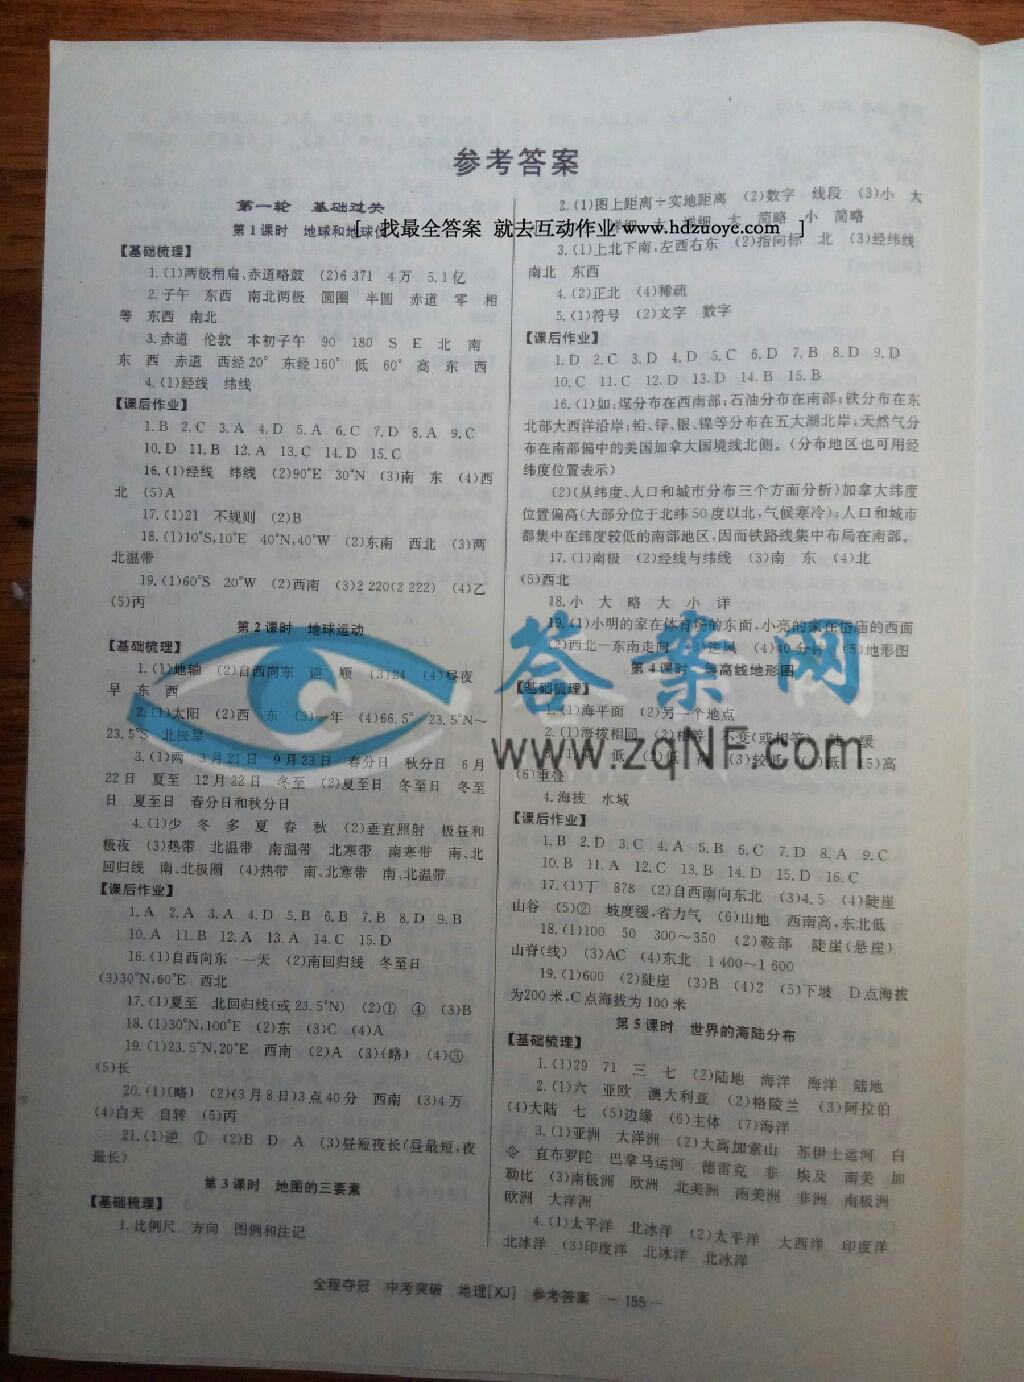 参考答案
第一轮 基础过关
第1课时 地球和地球仪
[ 找最全答案 就去互动作业 www.hdzuoye.com ]
【基础梳理】
1.(1)两极稍扁、赤道略鼓 (2)6 371 4万 5.1亿
2.子午 东西 南北两极 圆圈 半圆 赤道 零 相
等 东西 南北
3.赤道 伦敦 本初子午 90 180 S E 北 南
东 西 赤道 西经20° 东经160° 低 60° 高 东 西
4.(1)经线 纬线
【课后作业】
1.B 2.C 3.A 4.D 5.A 6.C 7.D 8.A 9.C
10.D 11.B 12.A 13.C 14.D 15.C
16.(1)经线 纬线 (2)90°E 30°N (3)南 东 (4)西
北 (5)A
17.(1)21 不规则 (2)B
18.(1)10°S,10°E 40°N,40°W (2)东南 西北 (3)两
北温带
19.(1)60°S 20°W (2)西南 (3)2 220(2 222) (4)乙
(5)丙
第2课时 地球运动
【基础梳理】
1.(1)地轴 (2)自西向东 逆 顺 (3)24 (4)昼夜
早 东 西
2.(1)太阳 (2)西 东 (3)一年 (4)66.5° 23.5°N～
23.5°S 北极星
3.(1)两 3月21日 9月23日 春分日 秋分日 6月
22日 夏至 12月22日 冬至 (2)夏至日 冬至日 冬至
日 夏至日 春分日和秋分日
4.(1)少 冬 多 夏 春 秋 (2)垂直照射 极昼和
极夜 (3)热带 北温带 南温带 北寒带 南寒带 南、北
回归线 南、北极圈 (4)热带 南、北寒带 南、北温带
【课后作业】
1.A 2.A 3.A 4.D 5.B 6.B 7.B 8.D 9.B
10.A 11.B 12.A 13.A 14.C 15.D
16.(1)自西向东 一天 (2)南回归线 冬至日
(3)30°N,60°E 西北
17.(1)夏至 北回归线(或23.5°N) (2)① ④ (3)B
18.(1)30°N,100°E (2)东 (3)C (4)A
19.(1)23.5°N,20°E 西南 (2)A (3)(略) (4)③
(5)长
20.(1)(略) (2)(3月8日)3点40分 西南 (3)4万
(4)白天 自转 (5)丙
21.(1)逆 ① (2)B D A (3)昼短夜长(昼最短,夜
最长)
第3课时 地图的三要素
【基础梳理】
1.比例尺 方向 图例和注记
2.(1)图上距离÷实地距离 (2)数字 线段 (3)小 大
详细 大 详细 大 简略 小 简略
3.(1)上北下南,左西右东 (2)指向标 北 (3)经纬线
南北 东西
4.(2)正北 (4)稀疏
5.(1)符号 (2)文字 数字
【课后作业】
1.D 2.C 3.D 4.D 5.C 6.D 7.B 8.D 9.D
10.C 11.C 12.D 13.D 14.B 15.B
16.(1)如:煤分布在西南部;石油分布在南部;铁分布在东
北部大西洋沿岸;铅、锌、银、镍等分布在五大湖北岸;天然气分
布在南部偏中的美国加拿大国境线北侧。(分布地区也可用经
纬度位置表示)
(2)(从纬度、人口和城市分布三个方面分析)加拿大纬度
位置偏高(大部分位于北纬50度以北,气候寒冷);人口和城市
都集中在纬度较低的南部地区,因而铁路线集中布局在南部。
17.(1)南极 (2)经线与纬线 (3)南 东 (4)北
(5)西北
18.小 大 略 大 小 详
19.(1)小明的家在体育场的东面,小亮的家在岱庙的西面
(2)西北—东南走向 (3)逆风 (4)40分钟 (5)地形图
第4课时 等高线地形图
【基础梳理】
1.(1)海平面 (2)另一个地点
2.(1)海拔相同 (2)相等 不变(或相等) 陡 缓
3.(1)高 低 (2)低 高 (3)较低 (4)低 (5)高
(6)重叠
4.海拔 水域
【课后作业】
1.B 2.D 3.C 4.A 5.B 6.C 7.D 8.A 9.C
10.B 11.A 12.C 13.B 14.D 15.D 16.C
17.(1)丁 878 (2)自西南向东北 (3)4.5 (4)陡崖
山谷 (5)② 坡度缓,省力气 (6)山地 西南高,东北低
18.(1)100 50 300～350 (2)鞍部 陡崖(悬崖)
山脊(线) (3)AC (4)东北 1 400～1 600
19.(1)600 (2)陡崖 (3)B (4)2 (5)下坡 D点海拔
为200米,C点海拔为100米
第5课时 世界的海陆分布
【基础梳理】
1.(1)29 71 三 七 (2)陆地 海洋 海洋 陆地
2.(1)六 亚欧 澳大利亚 (2)格陵兰 (3)阿拉伯
(4)大陆 七 (5)边缘 (6)主体 (7)海洋
3.(1)亚洲 大洋洲 (2)大高加索山 苏伊士运河 白
令 直布罗陀 巴拿马运河 德雷克 非 埃及 南美 加
勒比 (3)南极洲 欧洲 北美洲 南美洲 非洲 南极洲
欧洲 大洋洲
4.(1)太平洋 北冰洋 (2)太平洋 大西洋 印度洋
北冰洋 (3)印度洋 北冰洋 北冰洋
答案网
www.zqNF.com
全程夺冠 中考突破 地理[XJ] 参考答案 — 155 —